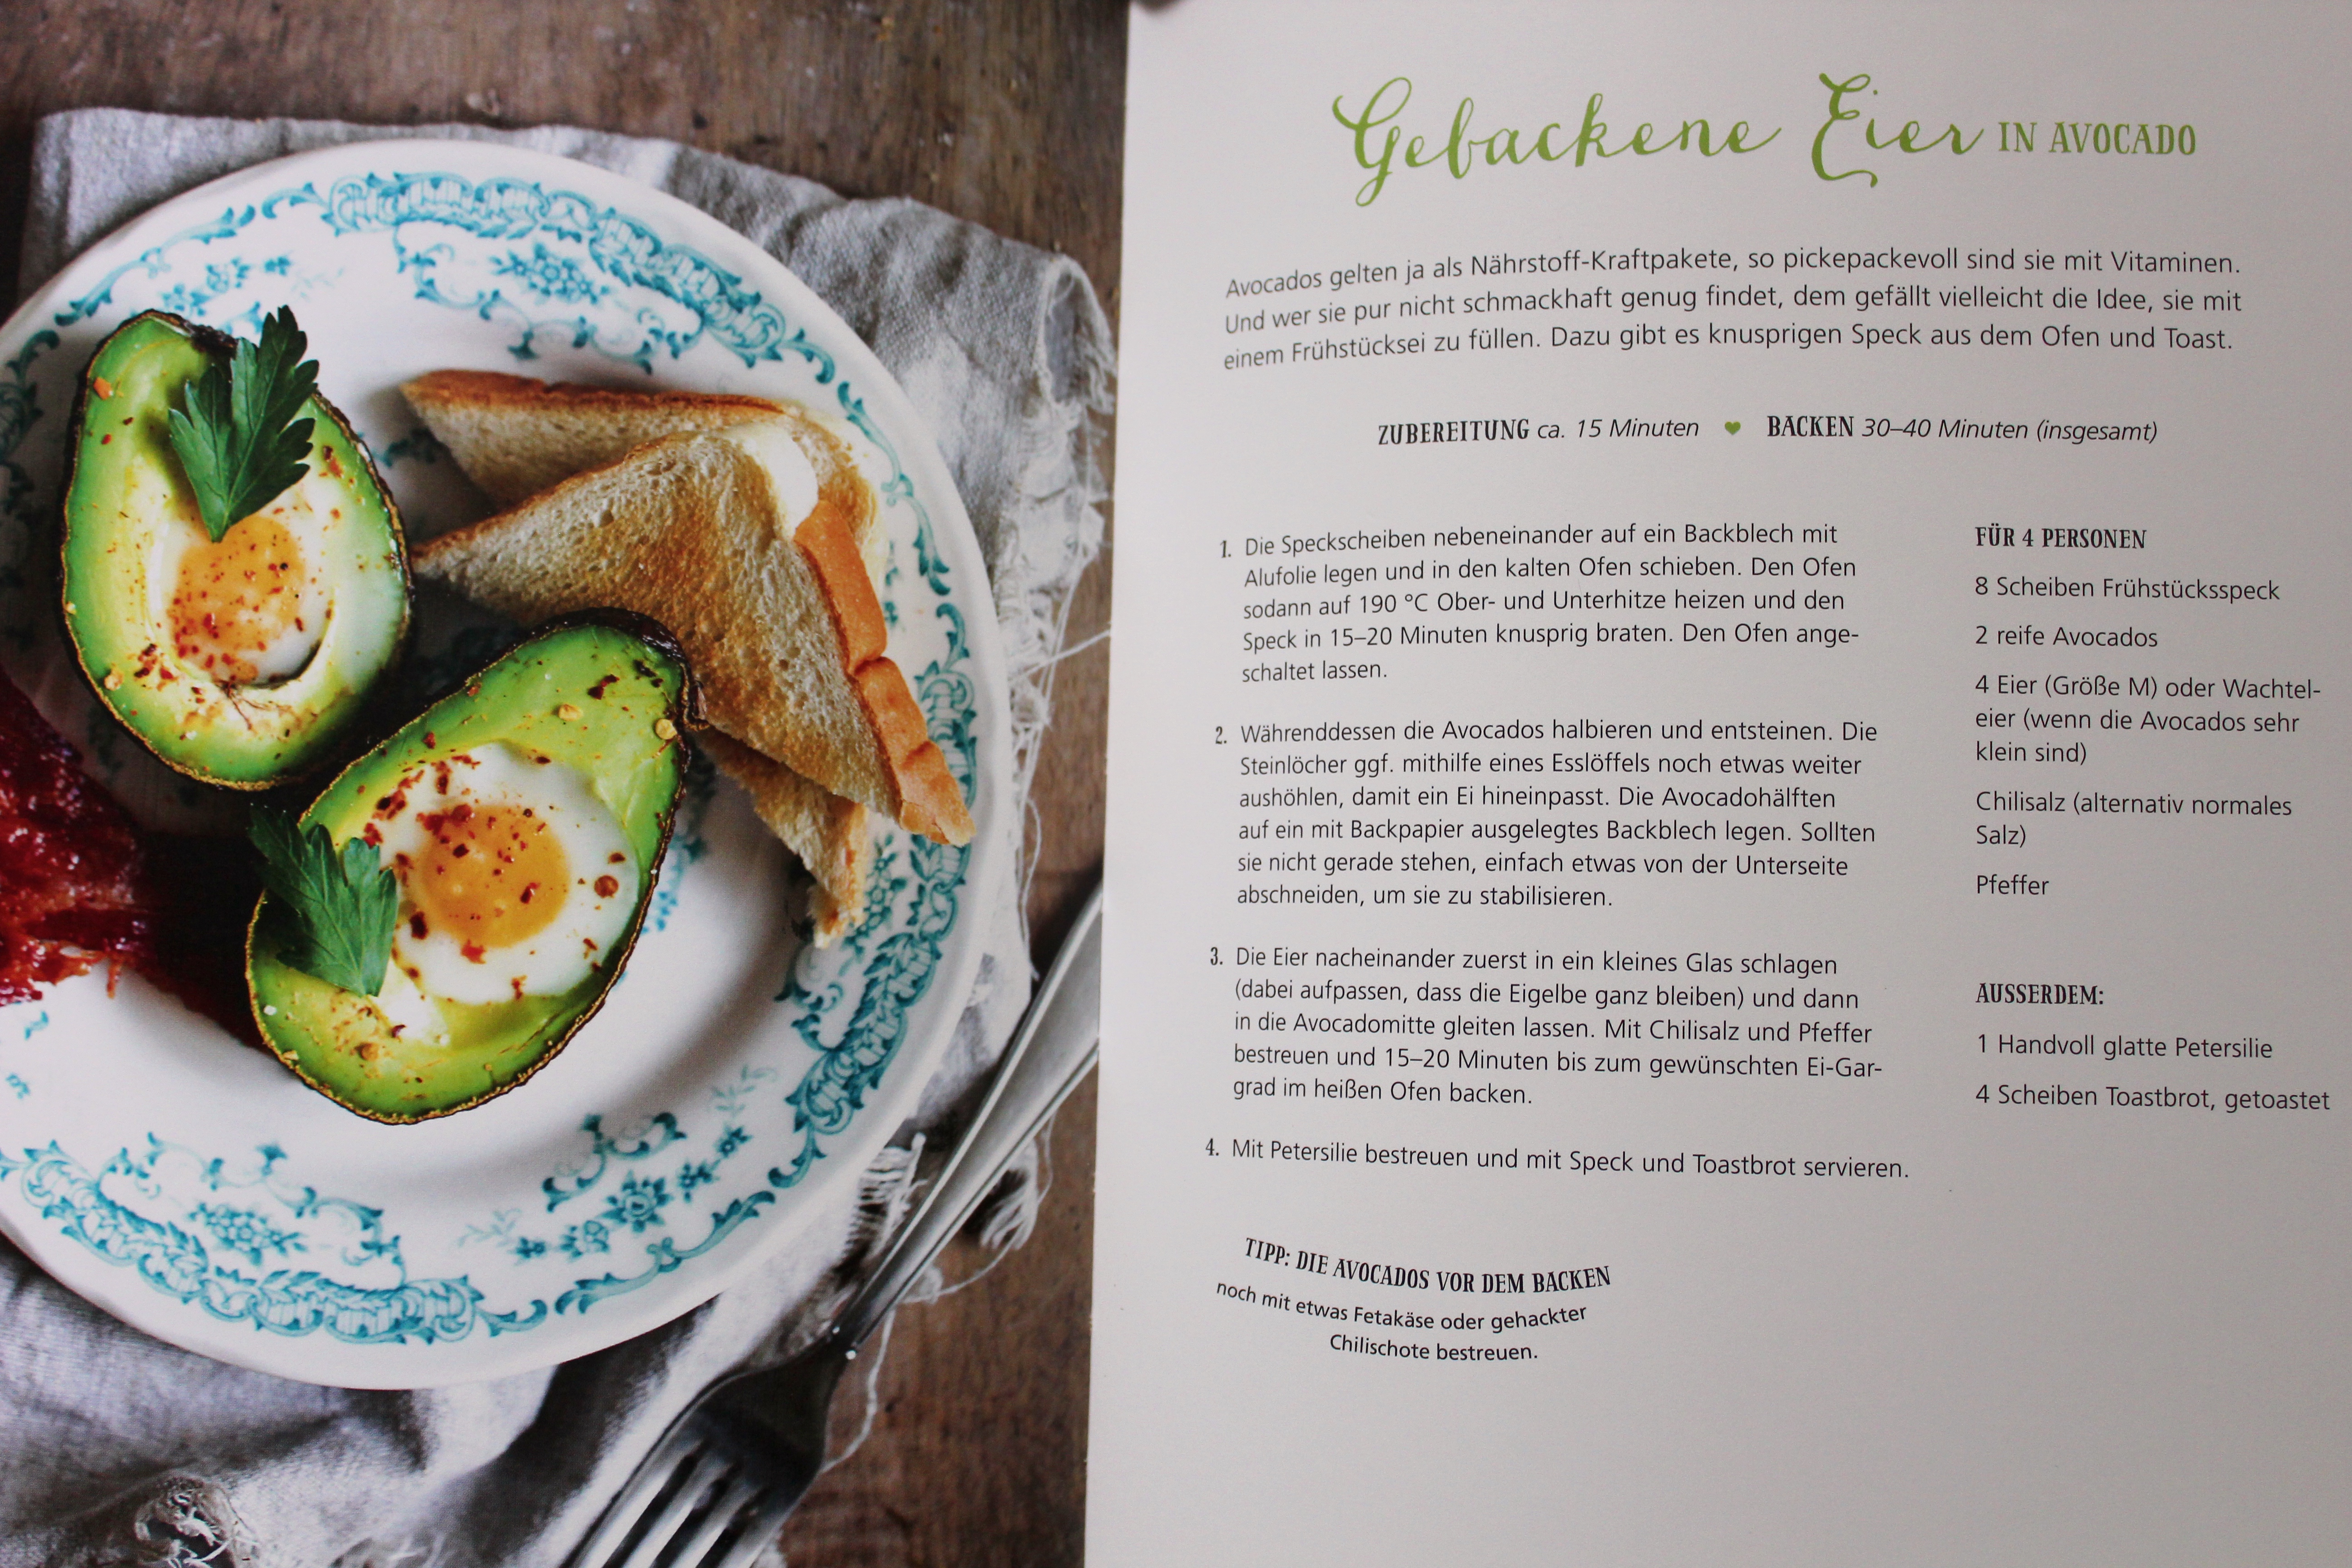 Gebackene Eier IN AVOCADO
Avocados gelten ja als Nährstoff-Kraftpakete, so pickepackevoll sind sie mit Vitaminen.
Und wer sie pur nicht schmackhaft genug findet, dem gefällt vielleicht die Idee, sie mit
einem Frühstücksei zu füllen. Dazu gibt es knusprigen Speck aus dem Ofen und Toast.
ZUBEREITUNG ca. 15 Minuten ♥ BACKEN 30–40 Minuten (insgesamt)
1. Die Speckscheiben nebeneinander auf ein Backblech mit
Alufolie legen und in den kalten Ofen schieben. Den Ofen
sodann auf 190 °C Ober- und Unterhitze heizen und den
Speck in 15–20 Minuten knusprig braten. Den Ofen ange-
schaltet lassen.
2. Währenddessen die Avocados halbieren und entsteinen. Die
Steinlöcher ggf. mithilfe eines Esslöffels noch etwas weiter
aushöhlen, damit ein Ei hineinpasst. Die Avocadohälften
auf ein mit Backpapier ausgelegtes Backblech legen. Sollten
sie nicht gerade stehen, einfach etwas von der Unterseite
abschneiden, um sie zu stabilisieren.
3. Die Eier nacheinander zuerst in ein kleines Glas schlagen
(dabei aufpassen, dass die Eigelbe ganz bleiben) und dann
in die Avocadomitte gleiten lassen. Mit Chilisalz und Pfeffer
bestreuen und 15–20 Minuten bis zum gewünschten Ei-Gar-
grad im heißen Ofen backen.
4. Mit Petersilie bestreuen und mit Speck und Toastbrot servieren.
TIPP: DIE AVOCADOS VOR DEM BACKEN
noch mit etwas Fetakäse oder gehackter
Chilischote bestreuen.
FÜR 4 PERSONEN
8 Scheiben Frühstücksspeck
2 reife Avocados
4 Eier (Größe M) oder Wachtel-
eier (wenn die Avocados sehr
klein sind)
Chilisalz (alternativ normales
Salz)
Pfeffer
AUSSERDEM:
1 Handvoll glatte Petersilie
4 Scheiben Toastbrot, getoastet